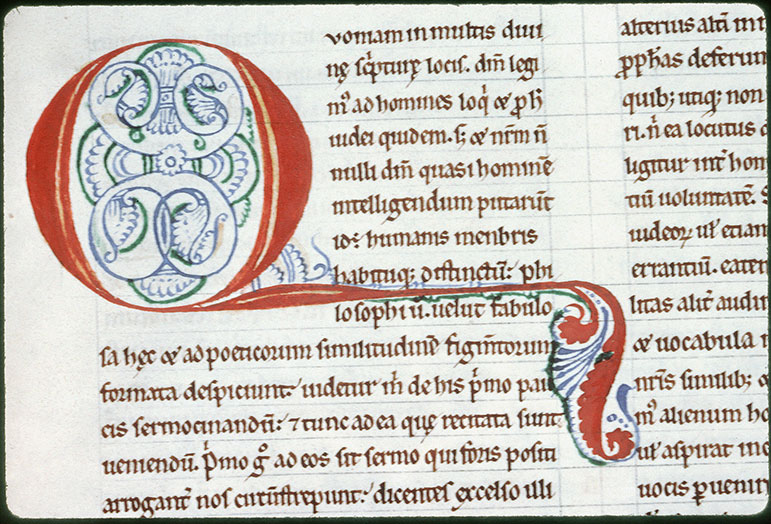 Quoniam in multis diui
nę scͥpturę locis. dm̄ legi
mꝰ ad homines loqͥ & ꝓhi
iudei quidem. sꝫ & nr̄m n̄
nulli dm̄ quasi hominē
intelligendum putarūt
id ÷ humanis menbris
habituqꝫ distinctū: phi
losophi ū. uelut fabulo
sa hęc & ad poeticorum similitudinē figm̄torum
formata despiciunt: uidetur m̄ de his pͥmo pau
cis sermocinandū: ⁊ tunc ad ea quę recitata sunt
ueniendū. Pͥmo gͦ ad eos sit sermo qui foris positi
arrogant̄ nos circūstrepunt: dicentes excelso illi
alterius altī
ꝓpħas deferun
quibꝫ utiqꝫ non
ri. n̄ ea locutus
ugitur int̄ hom
tiū uoluntatē. S
iudeoꝝ ul̄ etiam
errantiū. eaten
litas alit̄ audi
& uocabula
nr̄is similibꝫ
mꝰ alienum ho
ul̄ aspirat
uocis ꝑuenir